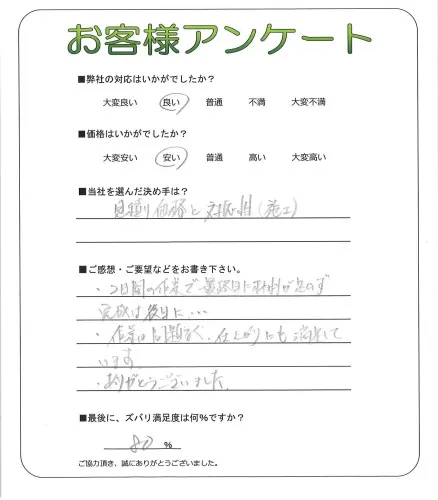 お客様アンケート
■弊社の対応はいかがでしたか?
大変良い 良い 普通 不満 大変不満
■価格はいかがでしたか?
大変安い 安い 普通 高い 大変高い
■当社を選んだ決め手は?
見積り価格と対応(施工)
■ご感想・ご要望などをお書き下さい。
・2日間の作業で最終日に材料が足のず
完成は後日に・・・
・作業は問題なく、仕上がりにも満足して
います。
・ありがとうございました。
■最後に、ズバリ満足度は何%ですか?
80 %
ご協力頂き、誠にありがとうございました。